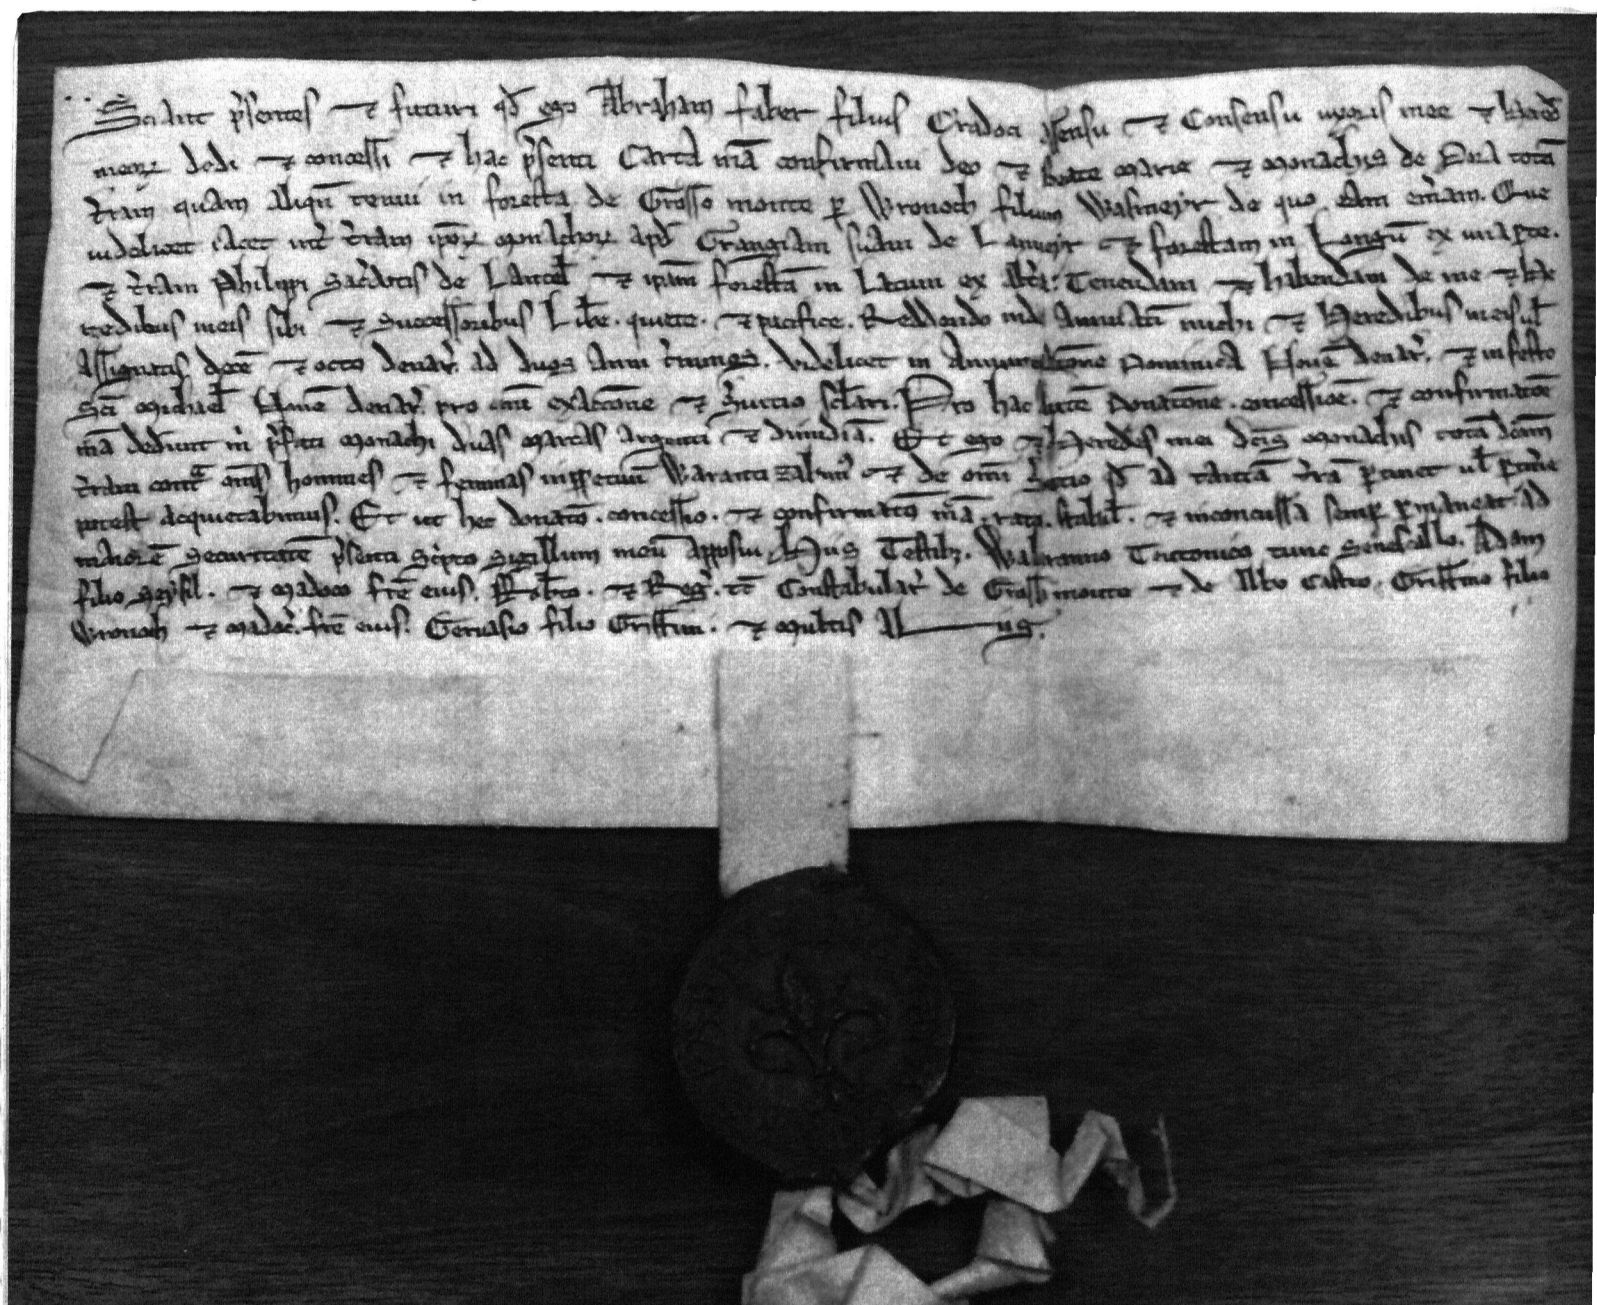 Sciant p̄sentes ⁊ futuri qd̄ ego Abraham faber filius Cradoci assensu ⁊ Consensu uxoris mee ⁊ hered̄
meoꝝ dedi ⁊ concessi ⁊ hac p̄senti Carta m̄a confirmaui deo ⁊ beate marie ⁊ monachis de Dora totā
t̄ram quam aliqn̄ tenui in foresta de Grosso monte ꝑ Wronoch filium Wasmeyr de quo eam em̄am. Que
uidelicet iacet int̄ t̄ram ip̄oꝝ monachoꝝ apd̄ Grangiam suam de Lanueyr ⁊ forestam in Longū ex una ꝑte.
⁊ t̄ram Philippi Sac̄dotis de Lantel̄ ⁊ ip̄am forestā in Latum ex alt̄a: Tenendam ⁊ habendam de me ⁊ he
redibus meis sibi ⁊ Successoribus Libe. quiete. ⁊ pacifice. Reddendo inde Annuatī michi ⁊ Heredibus meis ul̄
assignatis decē ⁊ octo denar̄. ad duos anni t̄minos. Videlicet in Annunciatōne Dominica Nouē denar̄. ⁊ in festo
Sc̄i Michael̄ Nouē denar̄. pro om̄i exactōne ⁊ s̄uitio sc̄lari. Pro hac autē Donatōne. concessiōe. ⁊ confirmatōe
m̄a dederunt m̄ p̄fati Monachi duas Marcas argenti ⁊ dimidiā. Et ego ⁊ Heredes mei dc̄is Monachis totā dc̄am
t̄ram cont̄ om̄s homines ⁊ feminas inꝑpetuū Warantizabim̄ ⁊ de om̄i s̄uitio qd̄ ad tantā t̄rā ꝑtinet ul̄ ꝑtin̄e
potest acquietabimus. Et ut hec donatō. concessio. ⁊ confirmatō m̄a. rata. stabil̄. ⁊ inconcussa semꝑ ꝑmaneat ad
maiorē Securitatē p̄senti Sc̄pto Sigillum meū apposui. Hiis Testibꝫ. Waleranno Teutonico tunc Senescallo. Adam
filio Seysil. ⁊ Madoco fr̄e eius. Rob̄to. ⁊ Reg̅. tc̄ Constabular̄ de Grosso monte ⁊ de Albo Castro. Griffino filio
Wronoch ⁊ Madoc̄. fr̄e eius. Geruasio filio Griffini. ⁊ Multis Aliis.